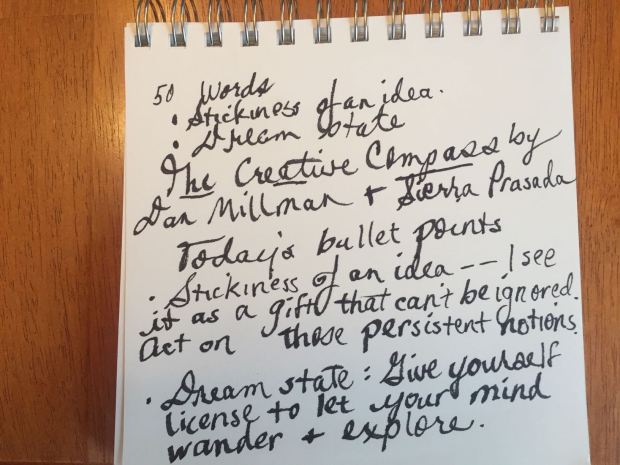 50 Words
• Stickiness of an idea.
• Dream State
The Creative Compass by
Dan Millman + Sierra Prasada
Today's bullet points
• Stickiness of an idea -- I see
it as a gift that can't be ignored.
Act on those persistent notions.
• Dream state: Give yourself
license to let your mind
wander + explore.